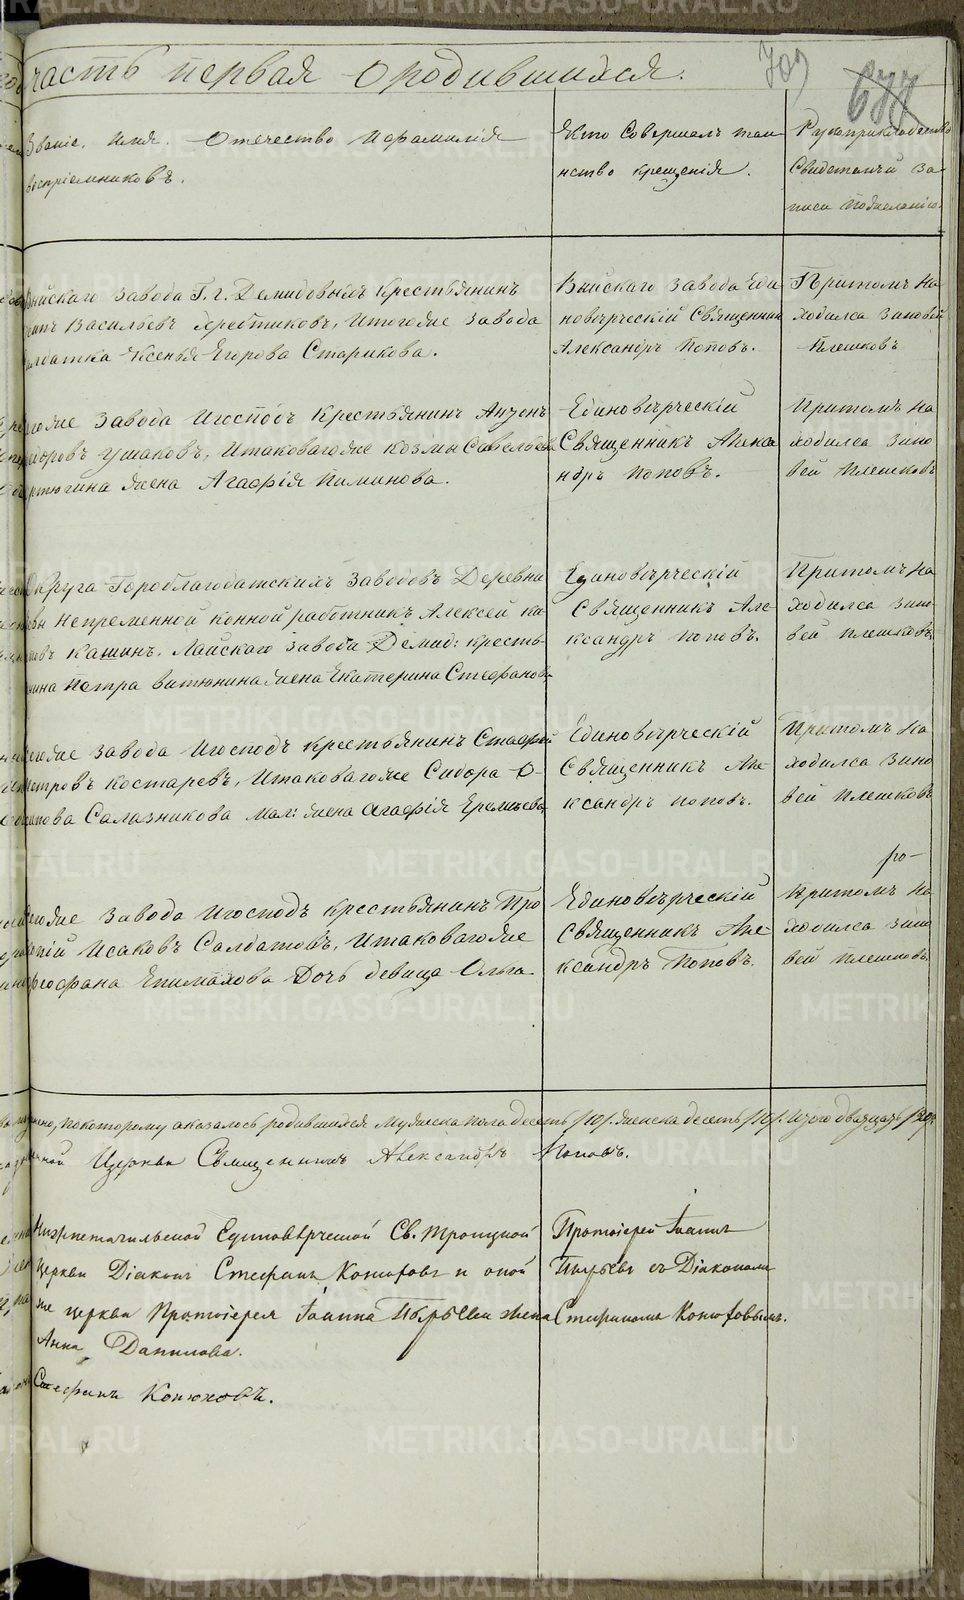 часть первая о родившихся.
709
677
Званіе, имя, Отечество И фамилія
воспріемниковъ.
Кто Совершалъ таи-
нство крещенія.
Рукоприкладство
Свидетелей за-
писи пожеланію.
Завода Г. г. Демидовыхъ Крестьянинъ
Васильевъ Хребтиковъ, Итогоже завода
Ксенья Егорова Старикова.
Выйскаго завода Еди
новѣрческій Священникъ
Александръ Поповъ.
Притомъ На
ходился Зиновей
Плешковъ
завода Игосподъ Крестьянинъ
Ушаковъ, Итаковагоже Козмы Савельева
жена Агафія Пиминова.
Единовѣрческій
Священникъ Алекса
ндръ Поповъ.
Притомъ На
ходился Зино
вей Плешковъ
Округа Гороблагодатскихъ Заводовъ Деревни
Непременной конной работникъ Алексей
Кашинъ. Лайскаго завода Демид: кресть-
Петра Витюнина жена Екатерина Стефанова
Единовѣрческій
Священникъ Але
ксандръ Поповъ.
Притомъ На
ходился Зино
вей Плешковъ
завода Игосподъ Крестьянинъ
Петровъ Костаревъ, Итаковагоже Сидора
Салазникова мал: жена Агафія Еремѣева
Единовѣрческій
Священникъ Але
ксандръ Поповъ.
Притомъ На
ходился Зино
вей Плешковъ
ро-
завода Игосподъ Крестьянинъ Про
Исаковъ Салдатовъ, Итаковагоже
Епимахова Дочь девица Ольга
Единовѣрческій
Священникъ Але
ксандръ Поповъ.
Притомъ На
ходился Зино
вей Плешковъ
покоторому оказалось родившихся Мужеска пола десеть /10/. женска десеть /10/. Итого двадцать /20/.
Церкви Священникъ Александръ Поповъ.
Нижнетагильской Единовѣрческой Св. Троицкой
церкви Діаконъ Стефанъ Конюховъ и оной
же церкви Протоіерея Іоанна Пырьева жена
Анна Данилова.
Протоіерей Іоаннъ
Пырьевъ съ Діакономъ
Стефаномъ Конюховымъ.
Стефанъ Конюховъ.
METRIKI.GASO-URAL.RU